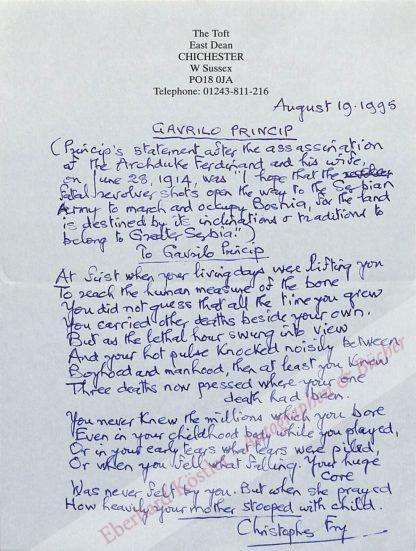 The Toft
East Dean
CHICHESTER
W Sussex
PO18 0JA
Telephone: 01243-811-216
August 19.1995
GAVRILO PRINCIP
(Princip's statement after the assassination
of the Archduke Ferdinand and his wife,
on June 28, 1914, was "I hope that the
fatal revolver shots open the way to the Serbian
Army to march and occupy Bosnia, for the land
is destined by its inclinations & traditions to
belong to Greater Serbia.")
To Gavrilo Princip
At first when your living days were lifting you
To reach the human measure of the bone
You did not guess that all the time you grew
You carried other deaths beside your own.
But as the lethal hour swung into view
And your hot pulse knocked noisily between
Boyhood and manhood, then at least you knew
Three deaths now pressed where your one
death had been.
You never knew the millions which you bore
Even in your childhood body while you played,
Or in your early tears what tears were piled,
Or when you fell what falling. Your huge
core
Was never felt by you. But when she prayed
How heavily your mother stooped with child.
Christopher Fry
Eberhard Köstler Autographen & Bücher